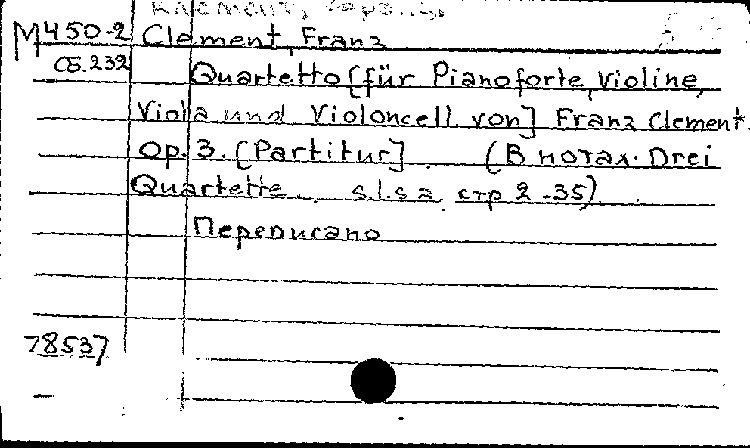 М450-2 Clement, Franz
Сб.232
Quartetto [für Pianoforte, Violine,
Viola und Violoncell von] Franz Clement.
Op. 3. [Partitur] (В нотах. Drei
Quartette. s.l.s.a. стр 2-35)
Переписано
78537